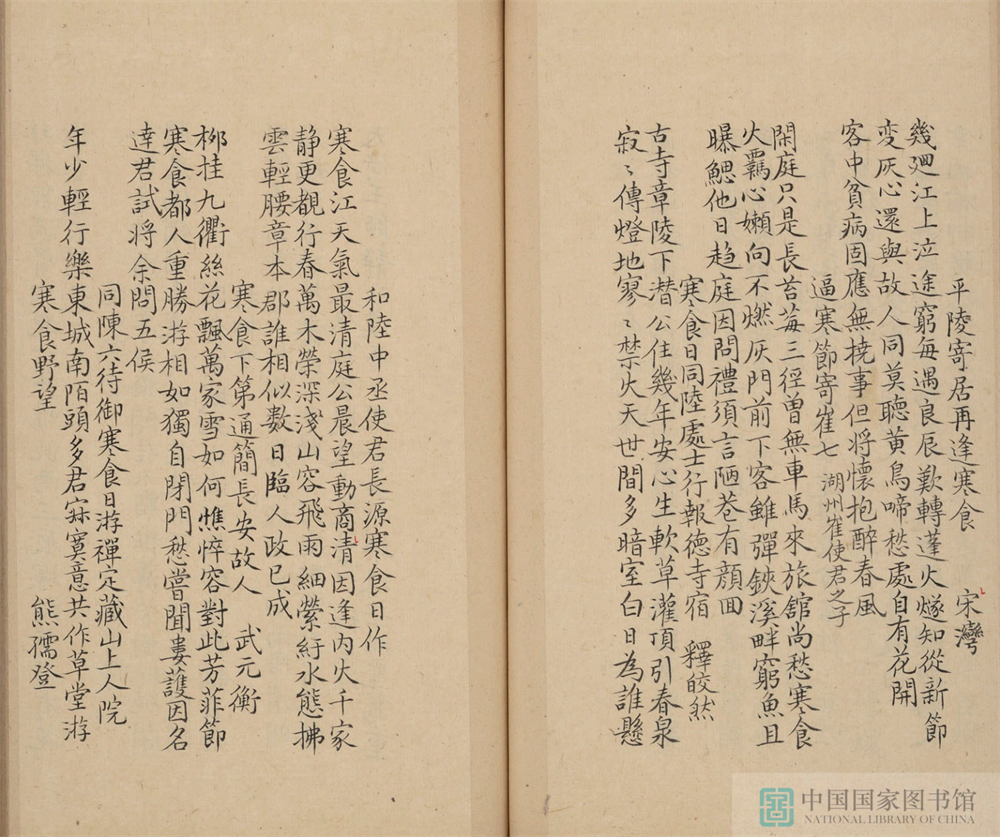 平陵寄居再逢寒食　宋灣
幾廻江上泣途窮每遇良辰歎轉蓬火燧知從新節
變灰心還與故人同莫聽黃鳥啼愁處自有花開
客中貧病固應無撓事但將懷抱醉春風
逼寒節寄崔七　湖州崔使君之子
閑庭只是長苔莓三徑曾無車馬來旅舘尚愁寒食
火羈心嬾向不燃灰門前下客雖彈鋏溪畔窮魚且
曝鰓他日趋庭因問禮須言陋巷有顔回
寒食日同陸處士行報德寺宿　釋皎然
古寺章陵下潜公住幾年安心生軟草灌頂引春泉
寂〻傳燈地寥〻禁火天世間多暗室白日為誰懸
和陸中丞使君長源寒食日作
寒食江天氣最清庭公晨望動商清因逢内火千家
静更覩行春萬木榮深淺山容飛雨細縈紆水態拂
雲輕腰章本郡誰相似数日臨人政已成
寒食下第通簡長安故人　武元衡
栁挂九衢絲花飄萬家雪如何憔悴容對此芳菲節
寒食都人重勝游相如獨自閉門愁嘗聞婁護因名
達君試将余問五侯
同陳六待御寒食日游禪定藏山上人院
年少輕行樂東城南陌頭多君寂寞意共作草堂游
寒食野望　熊孺登
中国国家图书馆
NATIONAL LIBRARY OF CHINA